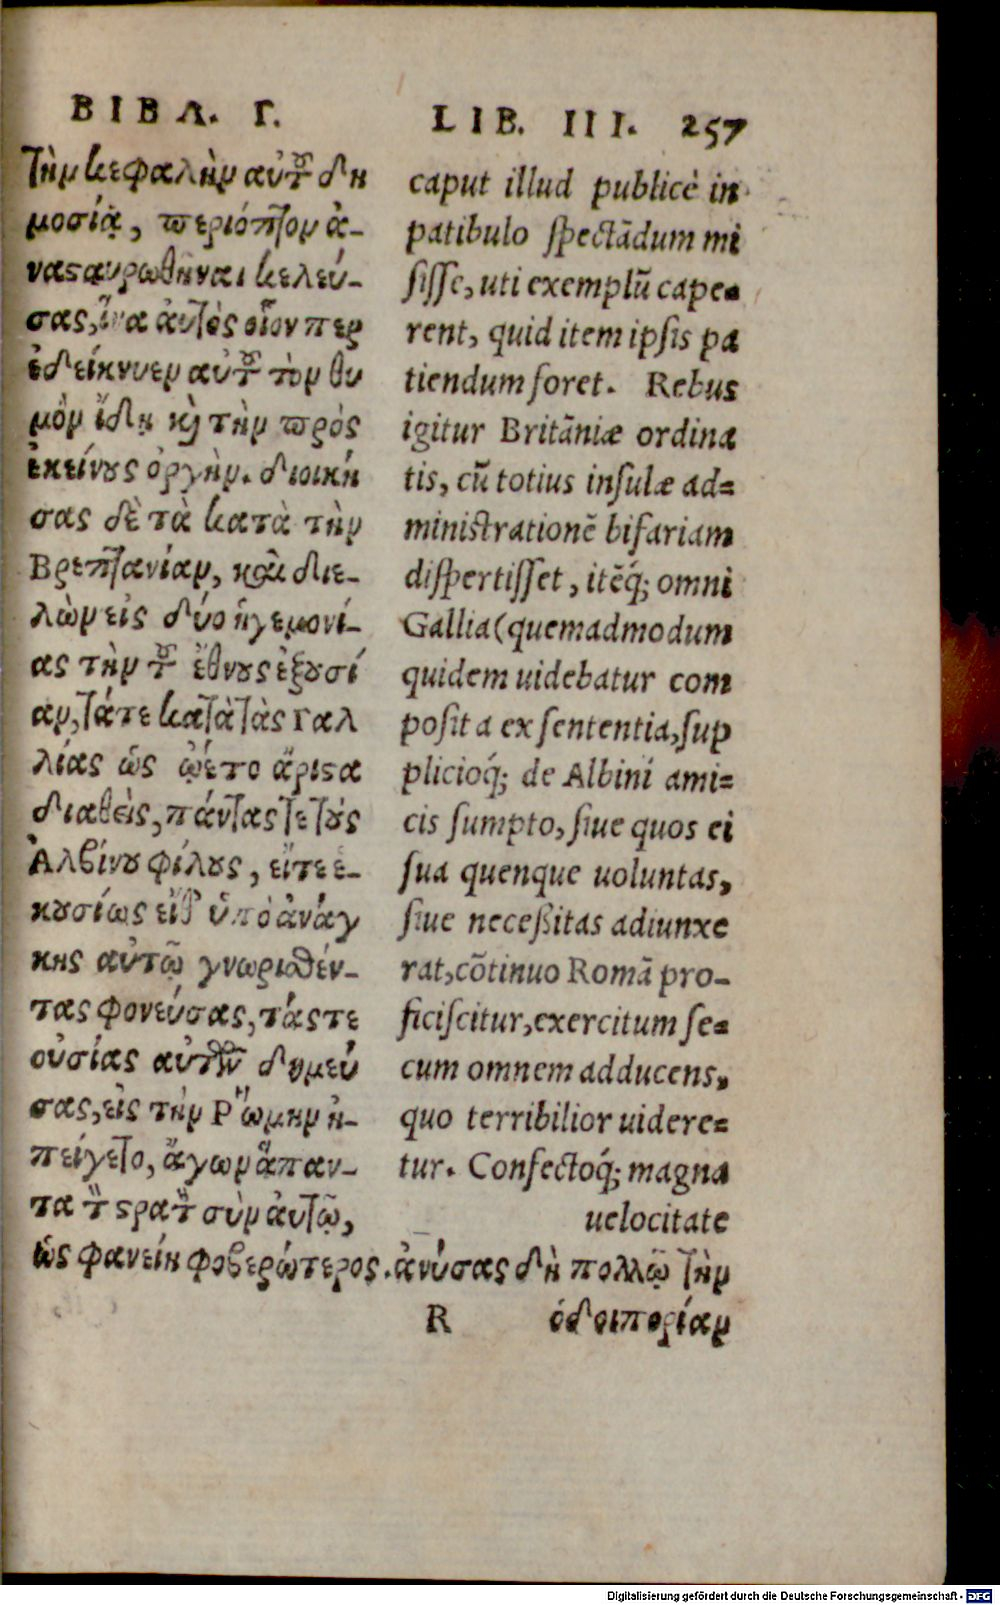 ΒΙΒΛ. Γ.
τὴν κεφαλὴν αὐτοῦ δη
μοσίᾳ, περίοπτον ἀ-
νασαυρωθῆναι κελεύ-
σας, ἵνα αὐτὸς οἷον περ
ἐδείκνυεν αὐτοῦ τὸν θυ
μὸν ἴδῃ καὶ τὴν πρὸς
ἐκείνους ὀργὴν. διοική
σας δὲ τὰ κατὰ τὴν
Βρεττανίαν, καὶ διε-
λὼν εἰς δύο ἡγεμονί-
ας τὴν τοῦ ἔθνους ἐξουσί
αν, τάτε κατὰ τὰς Γαλ
λίας ὡς ᾤετο ἄριστα
διαθεὶς, πάντας τε τοὺς
Ἀλβίνου φίλους, εἴτε ἑ-
κουσίως εἴθ' ὑπὸ ἀνάγ
κης αὐτῷ γνωρισθέν-
τας φονεύσας, τάς τε
οὐσίας αὐτῶν δημεύ
σας, εἰς τὴν Ῥώμην ἠ-
πείγετο, ἄγων ἅπαν-
τα τὸν στρατὸν σὺν αὐτῷ,
ὡς φανείη φοβερώτερος. ἀνύσας δὴ πολλῷ τὴν
ὁδοιπορίαν
LIB. III. 257
caput illud publicè in
patibulo spectādum mi
sisse, uti exemplū cape=
rent, quid item ipsis pa
tiendum foret. Rebus
igitur Britāniæ ordina
tis, cū totius insulæ ad=
ministrationē bifariam
dispertisset, itēq́; omni
Gallia (quemadmodum
quidem uidebatur com
posita ex sententia, sup
plicioq́; de Albini ami=
cis sumpto, siue quos ei
sua quenque uoluntas,
siue necessitas adiunxe
rat, cōtinuo Romā pro-
ficiscitur, exercitum se=
cum omnem adducens,
quo terribilior uidere=
tur. Confectoq́; magna
uelocitate
R
Digitalisierung gefördert durch die Deutsche Forschungsgemeinschaft - DFG